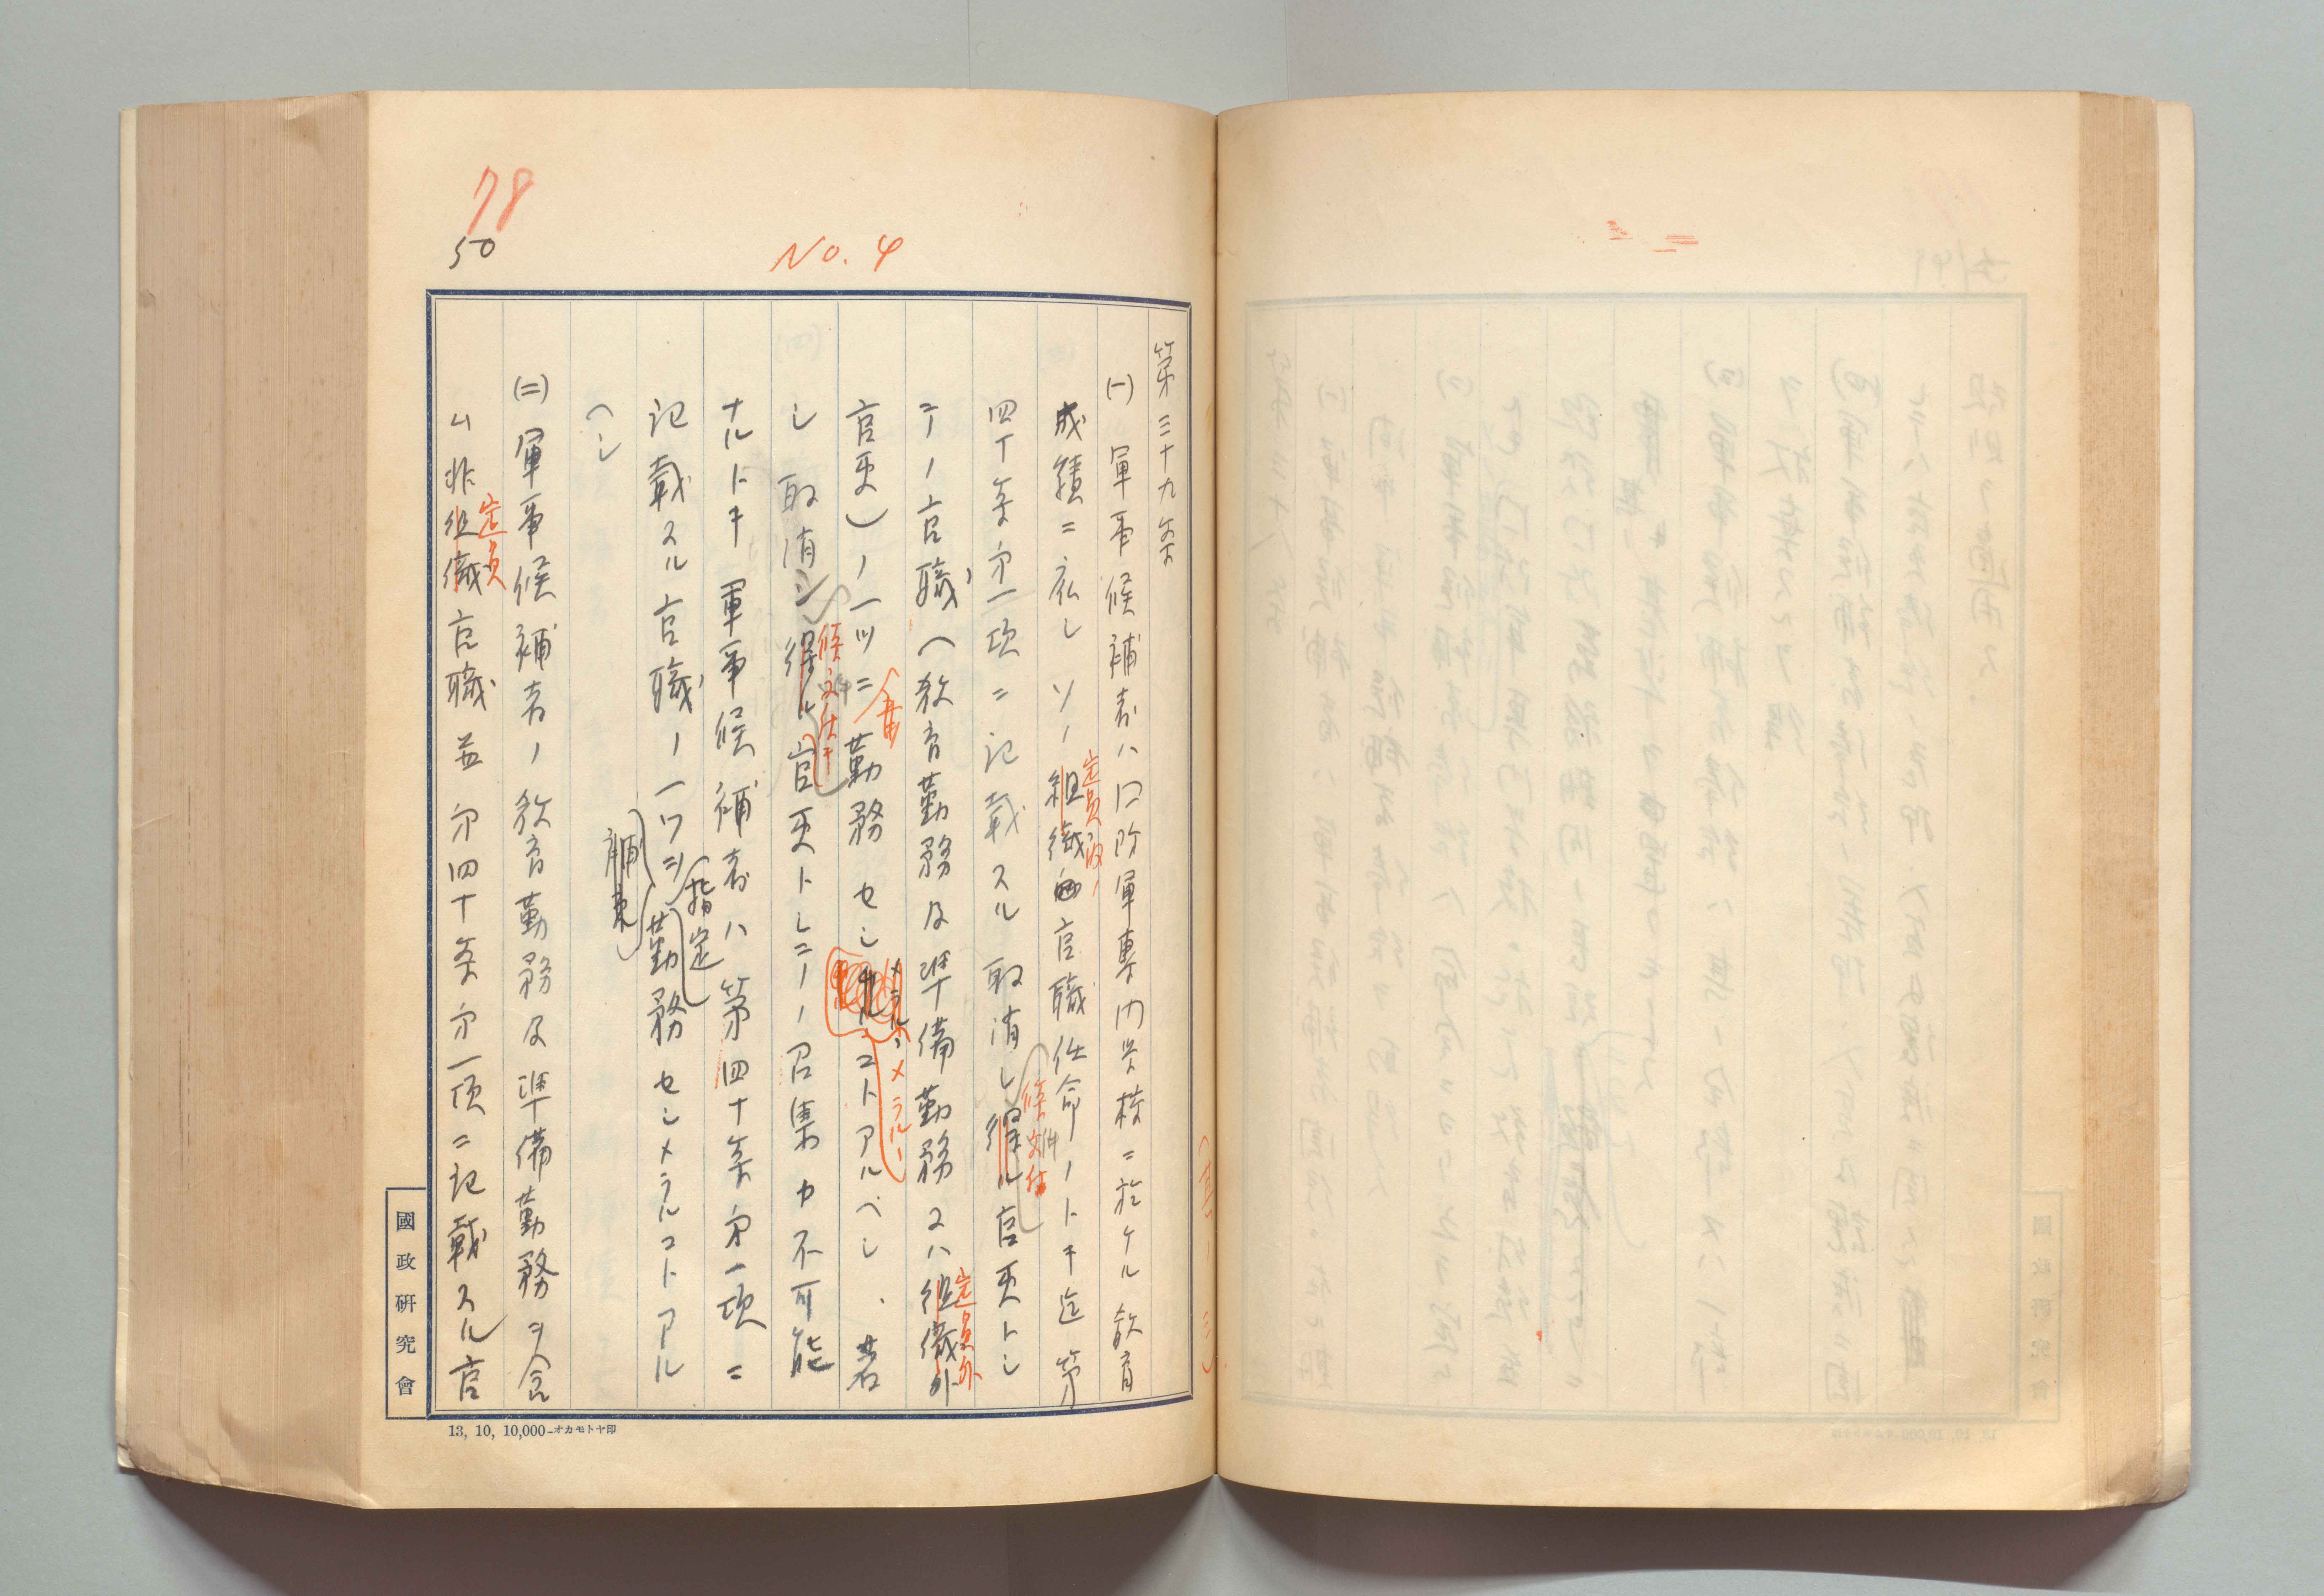 78
50
No. 4
第三十九条
(一) 軍事候補者ハ国防軍専門学校ニ於ケル教育
成績ニ依シソノ組織官職任命ノトキ迄第
定員内ノ
四十条第一項ニ記載スル取消シ得ル官吏トシ
条件付
テノ官職(教育勤務及準備勤務又ハ組織外
定員外
官吏)ノ一ツニ勤務セシコトアルベシ、若
メラルヽ
シ取消シ得ル官吏トシテノ召集カ不可能
条件付
ナルトキ軍事候補者ハ第四十条第一項ニ
記載スル官職ノ一ツヲ勤務セシメラルコトアル
指定
ヘシ
(二) 軍事候補者ノ教育勤務及準備勤務ヲ含
ム非組織官職並第四十条第一項ニ記載スル官
定員
國政研究會
13, 10, 10,000—オカモトヤ印